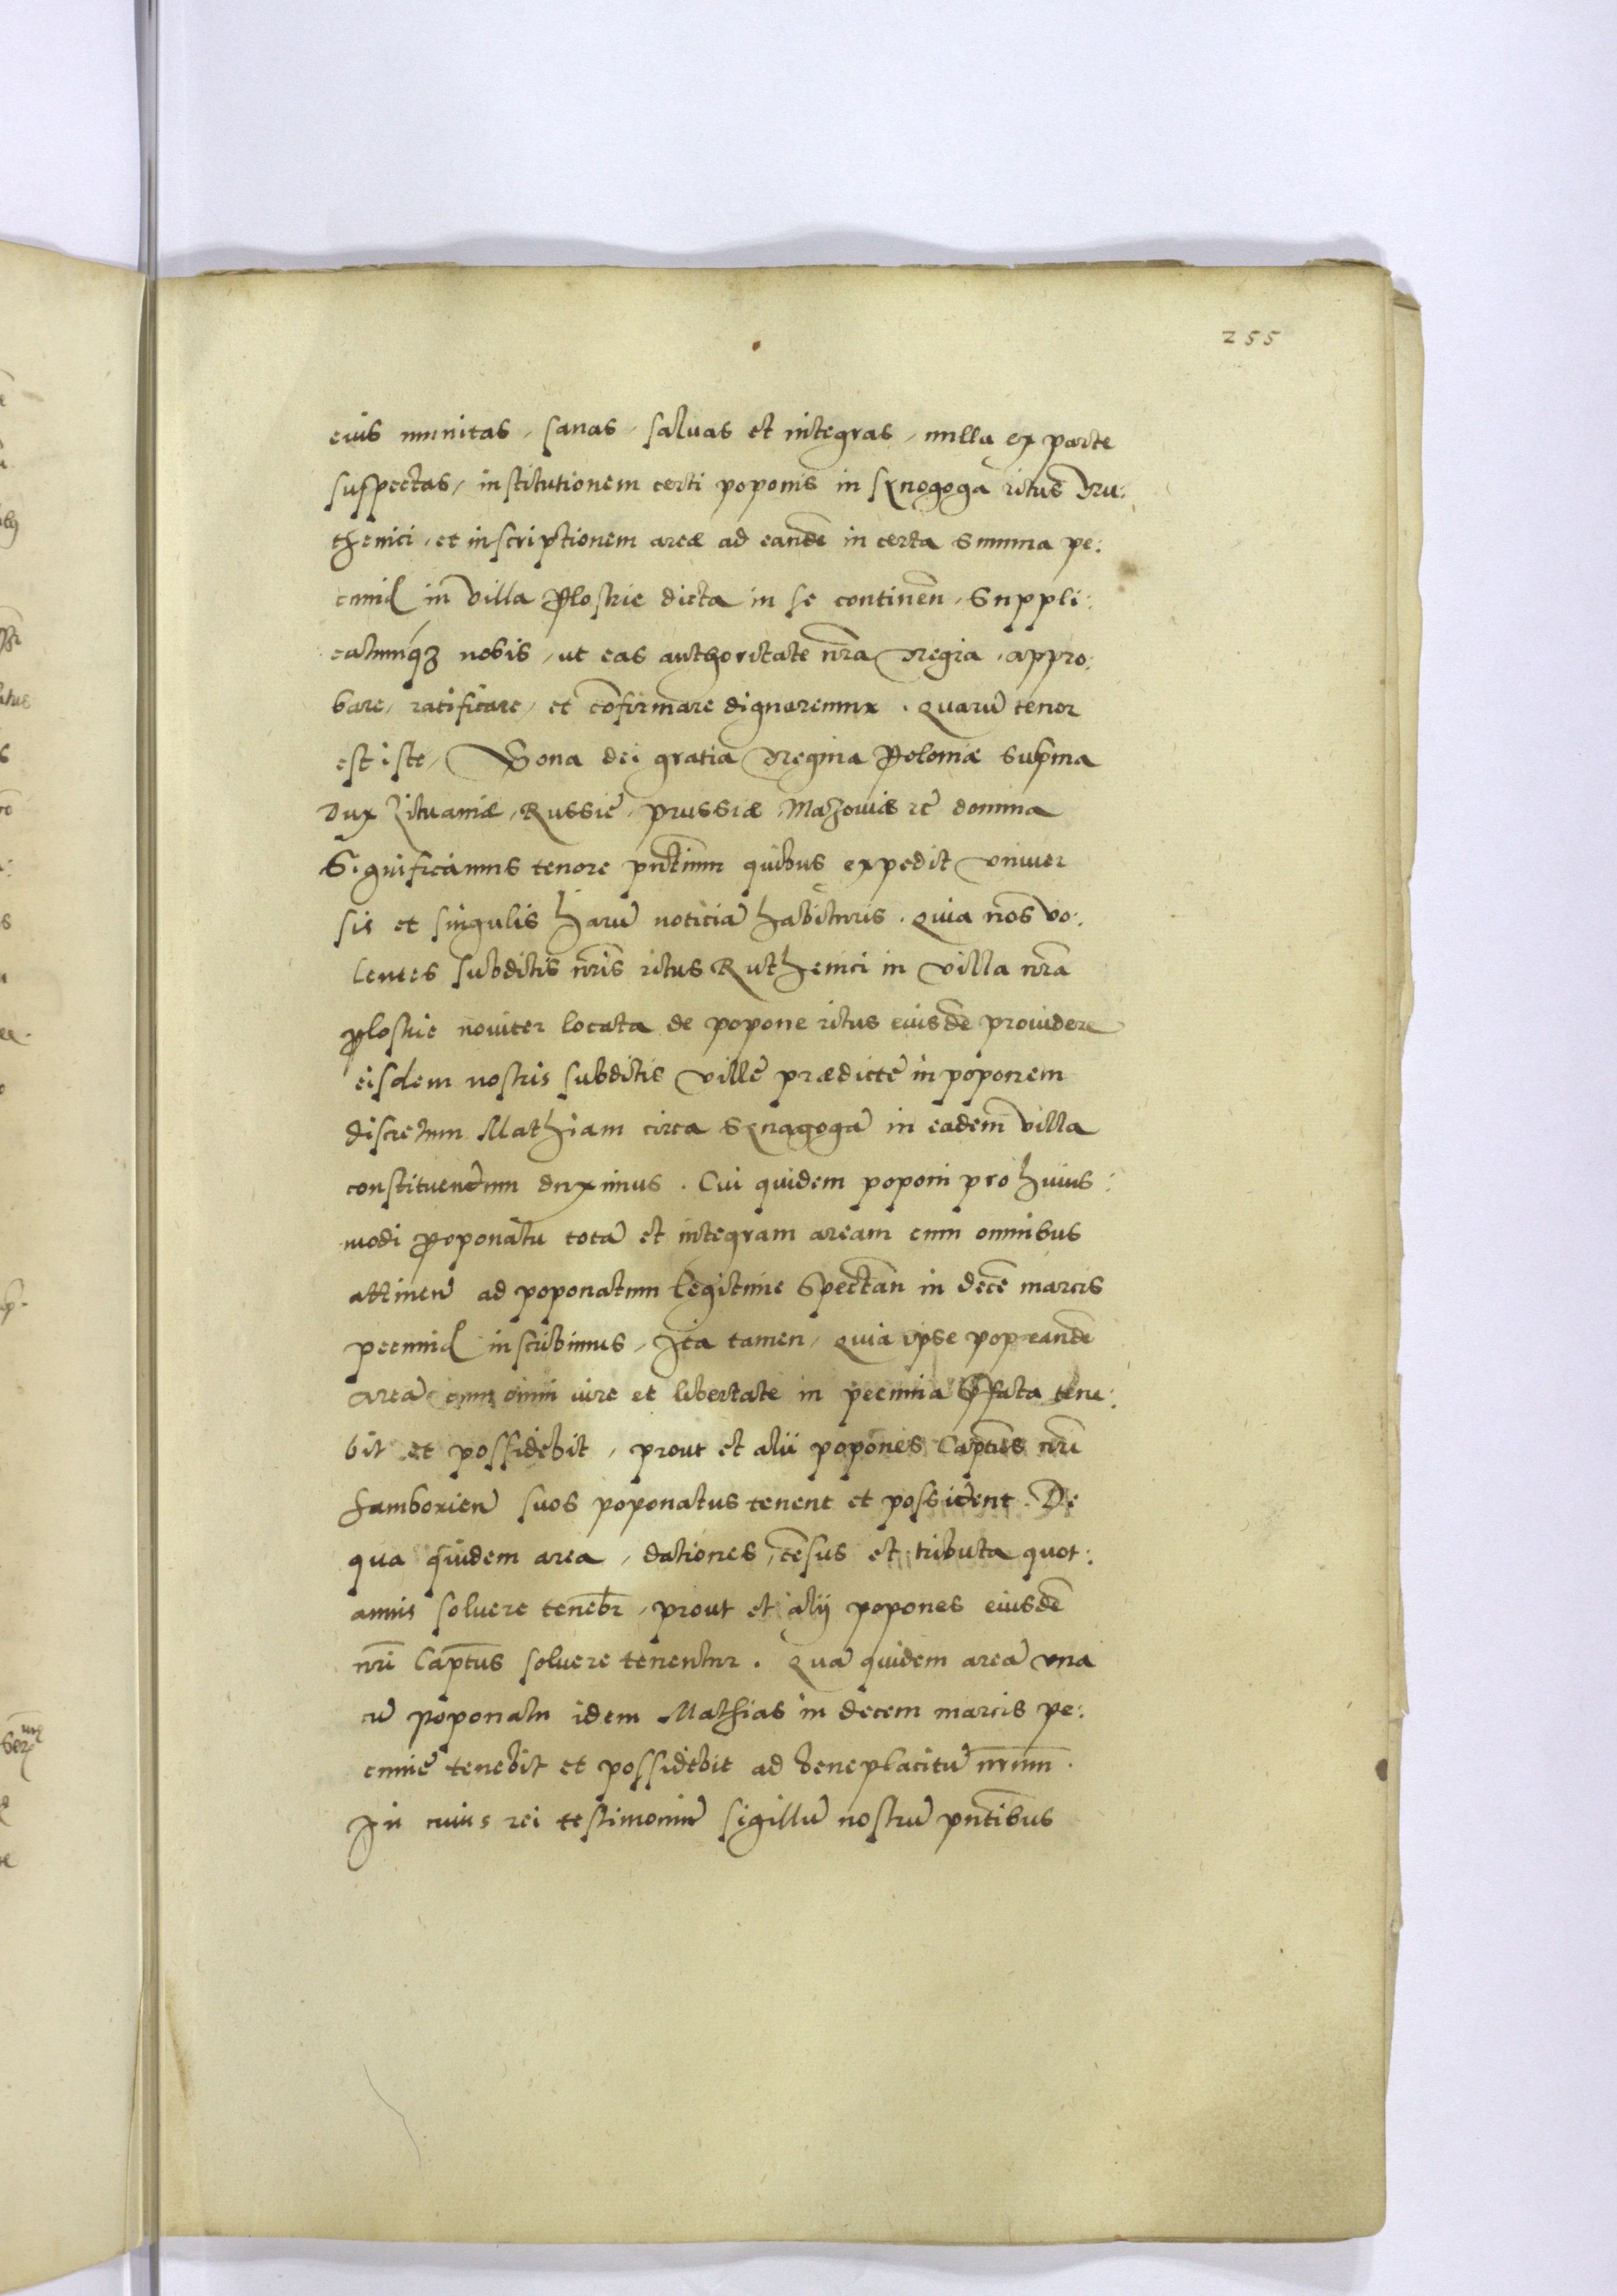 255
eius munitas, sanas, saluas et integras, nulla ex parte
suspectas, institutionem certi poponis in synogoga ritus Ru:
thenici, et inscriptionem areæ ad eandē in certa summa pe:
cuniæ in villa Plostrie dicta in se continen̄. Suppli:
catumq́ꝫ nobis, ut eas authoritate nr̄a Regia, appro:
bare, ratificare, et cōfirmare dignaremur. Quarū tenor
est iste, Bona dei gratia Regina Poloniæ Supma
Dux Lituaniæ, Russie, Prussiæ, Mazouiæ etc̄ domina
Significamus tenore pn̄tium quibus expedit vniuer
sis et singulis harū noticiā habituris. Quia nos vo:
lentes subditis nr̄is ritus Ruthenici in villa nr̄a
Plostrie nouiter locata de popone ritus eiusdē prouidere
eisdem nostris subditis Ville prædicte in poponem
discretum Mathiam circa Synagogā in eadem villa
constituendum duximus. Cui quidem poponi pro huius:
modi poponatu totā et integram aream cum omnibus
attinen̄ ad poponatum legitime Spectan̄ in decē marcis
pecuniæ inscribimus, Ita tamen, quia ipse pop eandē
areā cum omni iure et libertate in pecunia p̄fata tene:
bit et possidebit, prout et alii popones Captūs nr̄i
Samborien̄ suos poponatus tenent et possident. De
qua quidem area, dationes, cēsus et tributa quot:
annis soluere tenebr̄, prout et alij popones eiusdē
nr̄i Captūs soluere tenentur. Quā quidem areā vna
cū poponatu idem Mathias in decem marcis pe:
cunie tenebit et possidebit ad beneplacitū nr̄um.
In cuius rei testimoniū sigillū nostrū pn̄tibus